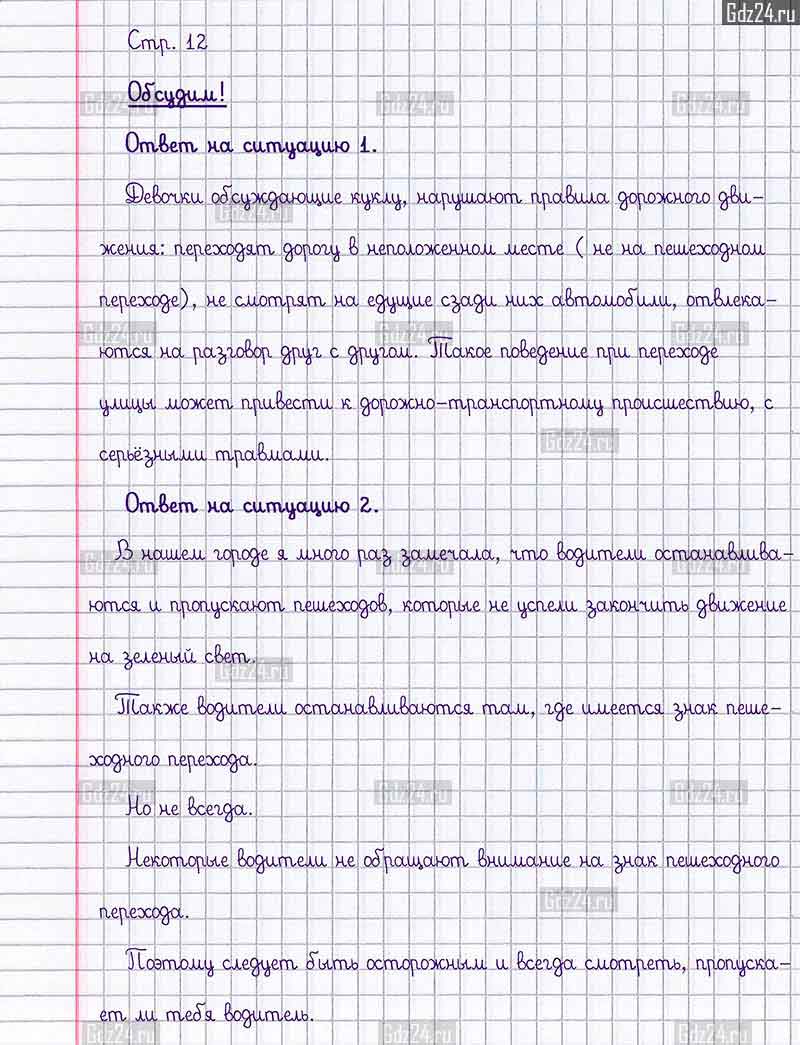 Gdz24.ru
Стр. 12
Обсудим!
Ответ на ситуацию 1.
Девочки обсуждающие куклу, нарушают правила дорожного дви-
жения: переходят дорогу в неположенном месте ( не на пешеходном
переходе), не смотрят на едущие сзади них автомобили, отвлека-
ются на разговор друг с другом. Такое поведение при переходе
улицы может привести к дорожно-транспортному происшествию, с
серьёзными травмами.
Ответ на ситуацию 2.
В нашем городе я много раз замечала, что водители останавлива-
ются и пропускают пешеходов, которые не успели закончить движение
на зеленый свет.
Также водители останавливаются там, где имеется знак пеше-
ходного перехода.
Но не всегда.
Некоторые водители не обращают внимание на знак пешеходного
перехода.
Поэтому следует быть осторожным и всегда смотреть, пропуска-
ет ли тебя водитель.